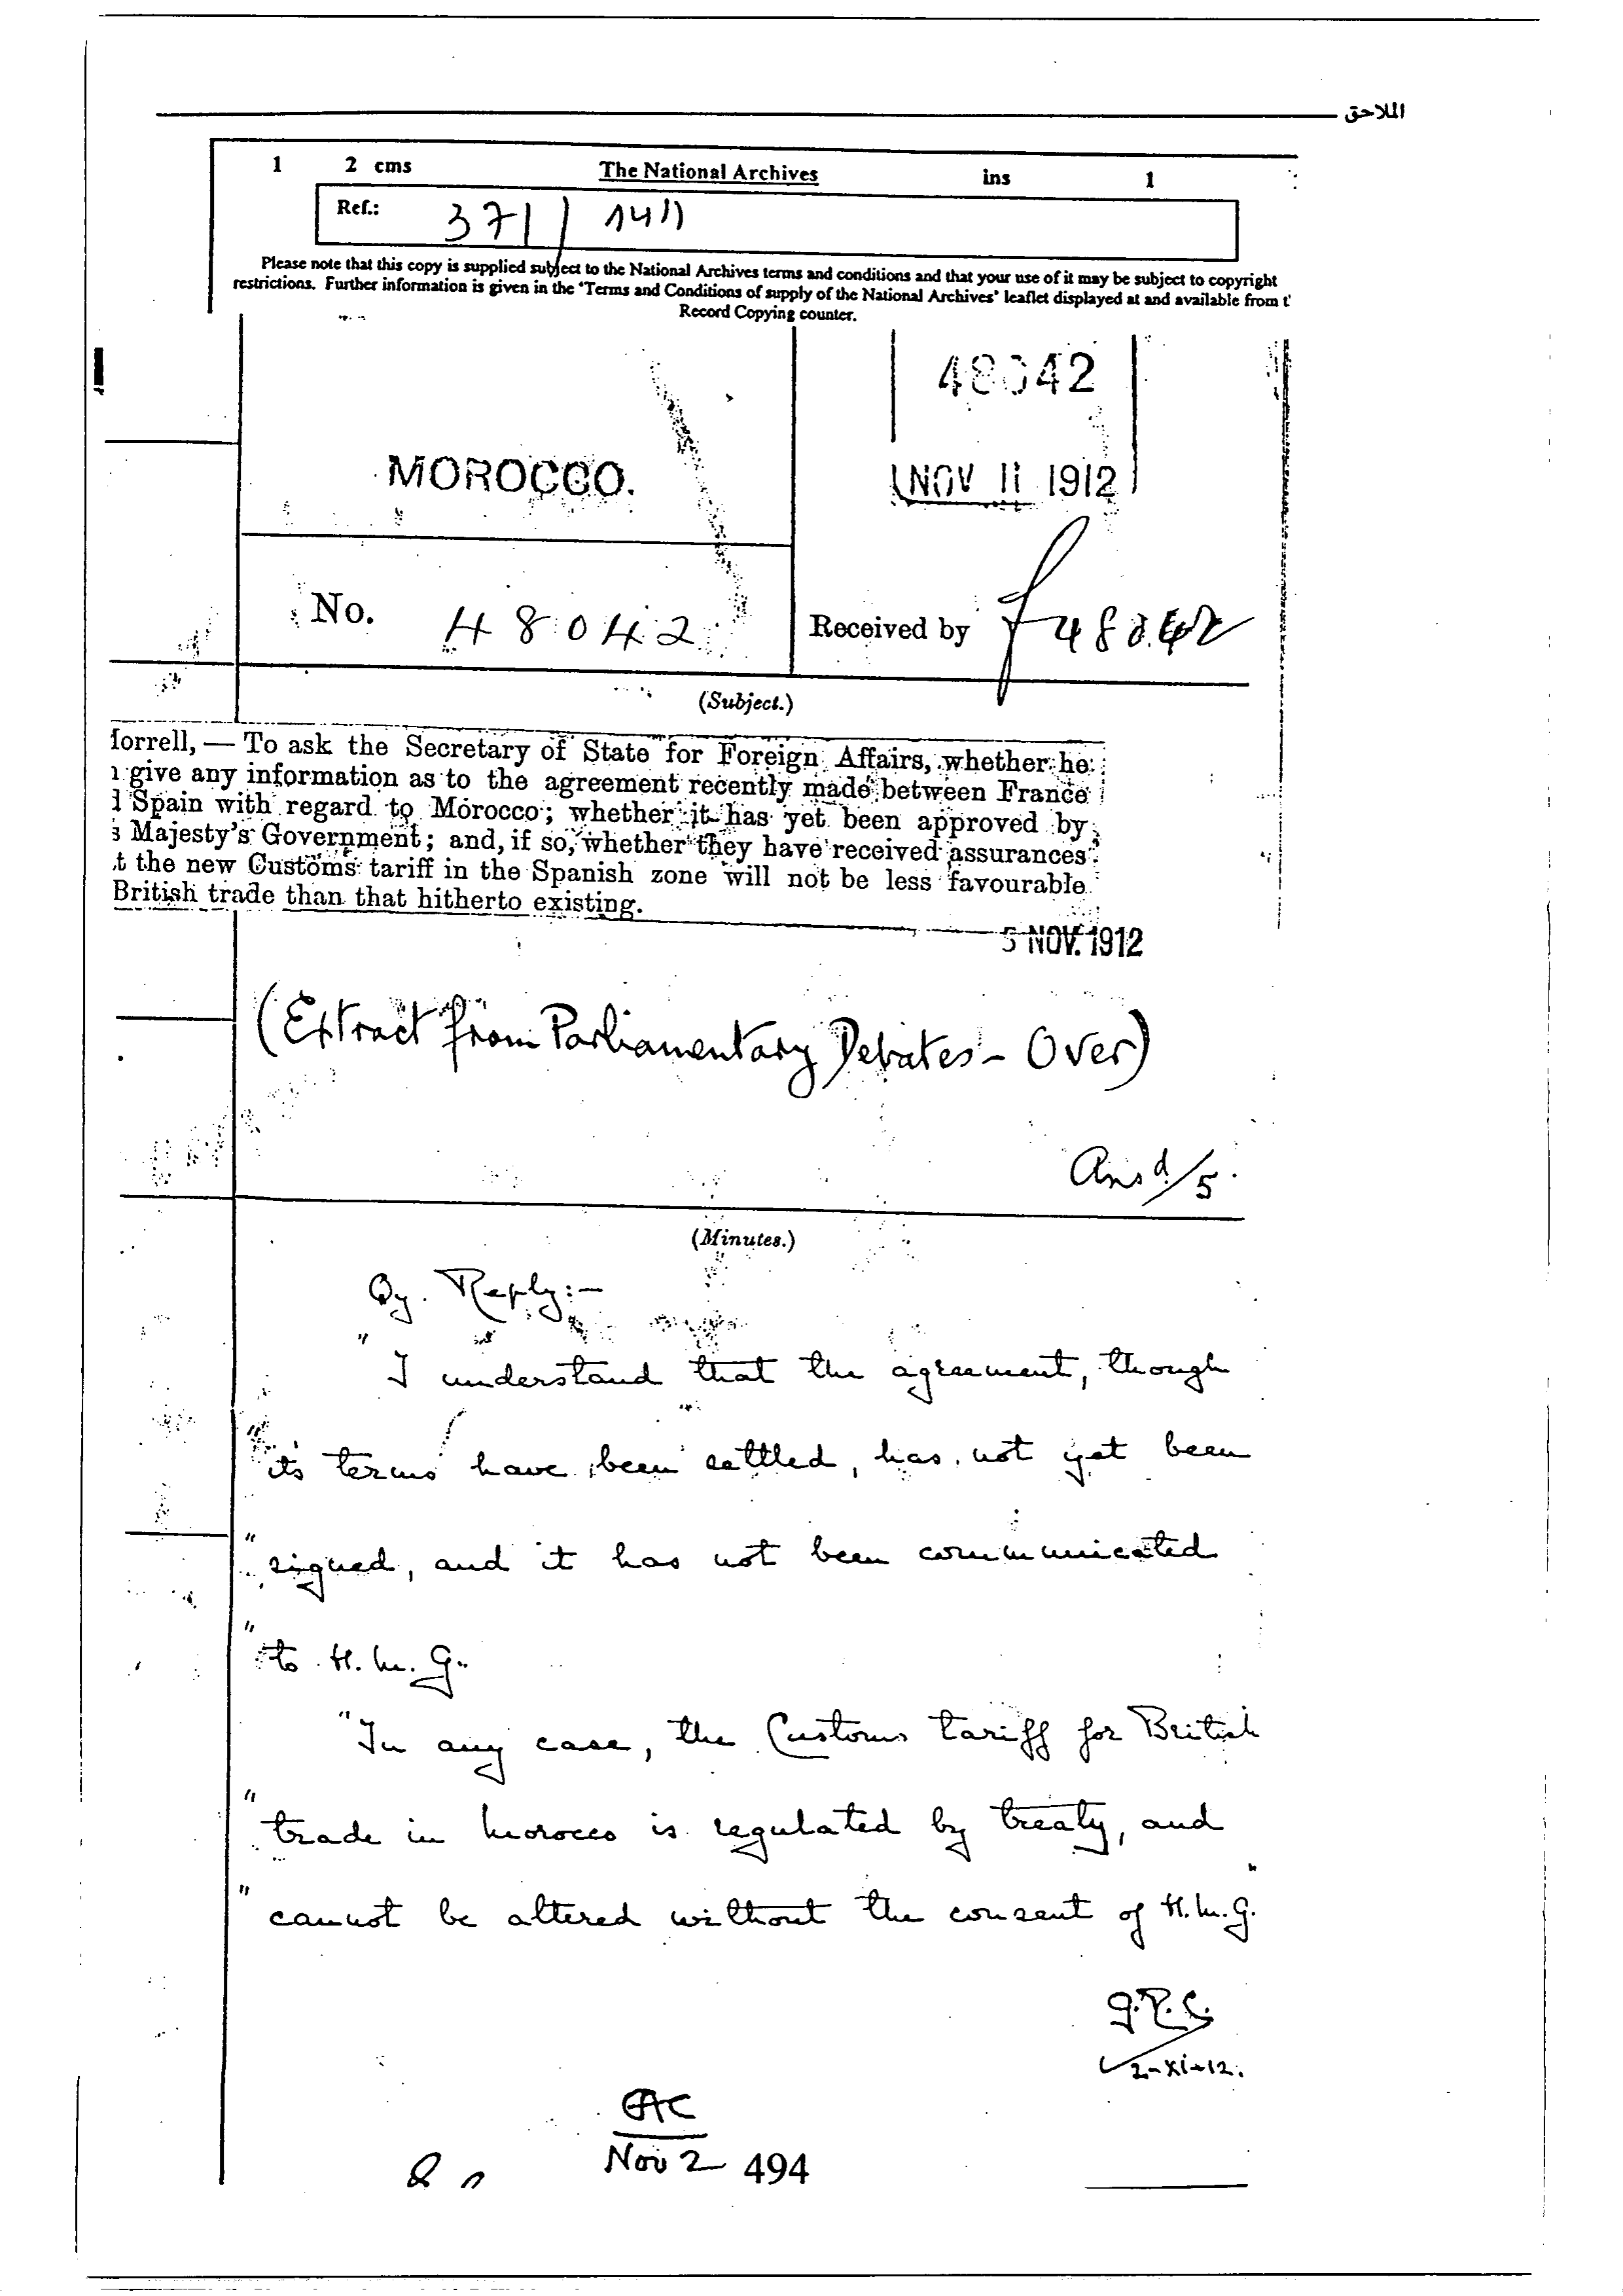 الملاحق
1 2 cms The National Archives ins 1
Ref.: 371 / 1411
Please note that this copy is supplied subject to the National Archives terms and conditions and that your use of it may be subject to copyright
restrictions. Further information is given in the 'Terms and Conditions of supply of the National Archives' leaflet displayed at and available from t
Record Copying counter.
48042
MOROCCO.
NOV 11 1912
No. 48042
Received by 48042
(Subject.)
Morrell, — To ask the Secretary of State for Foreign Affairs, whether he
n give any information as to the agreement recently made between France
d Spain with regard to Morocco; whether it has yet been approved by
s Majesty's Government; and, if so, whether they have received assurances
t the new Customs tariff in the Spanish zone will not be less favourable
British trade than that hitherto existing.
5 NOV. 1912
(Extract from Parliamentary Debates - Over)
Ansd/5.
(Minutes.)
Qy. Reply:-
" I understand that the agreement, though
" its terms have been settled, has not yet been
" signed, and it has not been communicated
" to H.M.G.
" In any case, the Customs tariff for British
" trade in Morocco is regulated by treaty, and
" cannot be altered without the consent of H.M.G."
2-xi-12.
EAC
Nov 2
494